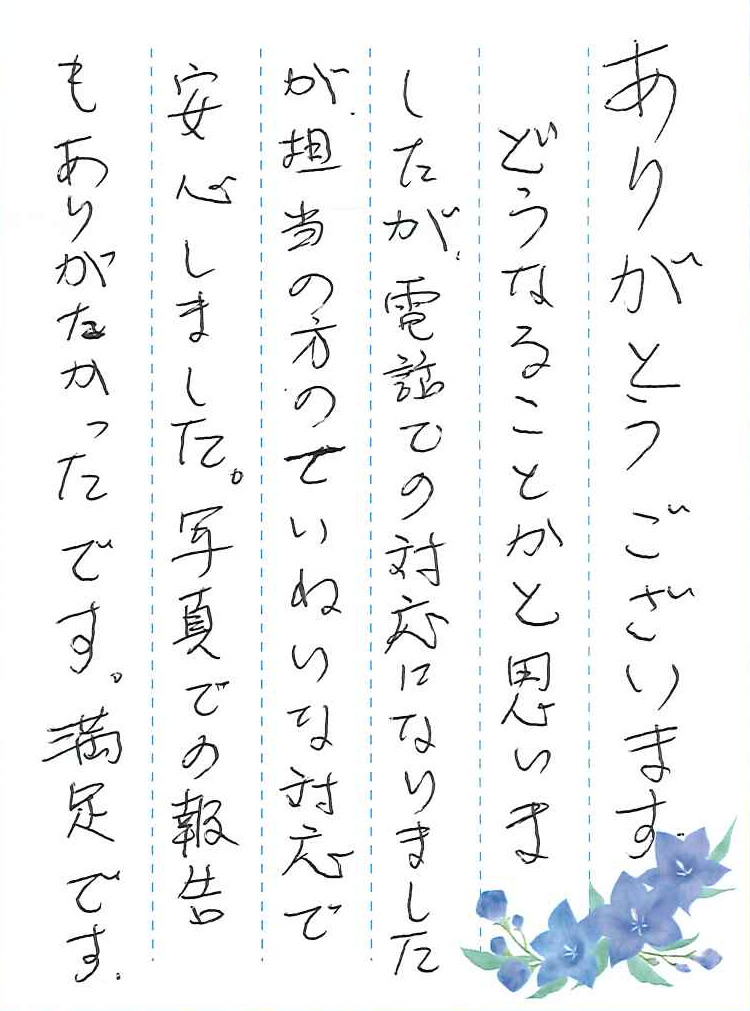 ありがとうございます。
どうなることかと思いま
したが、電話での対応になりました
が、担当の方のていねいな対応で
安心しました。写真での報告
もありがたかったです。満足です。